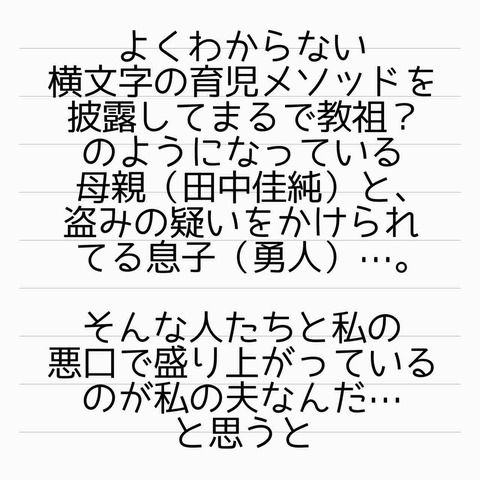 よくわからない
横文字の育児メソッドを
披露してまるで教祖？
のようになっている
母親（田中佳純）と、
盗みの疑いをかけられ
てる息子（勇人）…。
そんな人たちと私の
悪口で盛り上がっている
のが私の夫なんだ…
と思うと